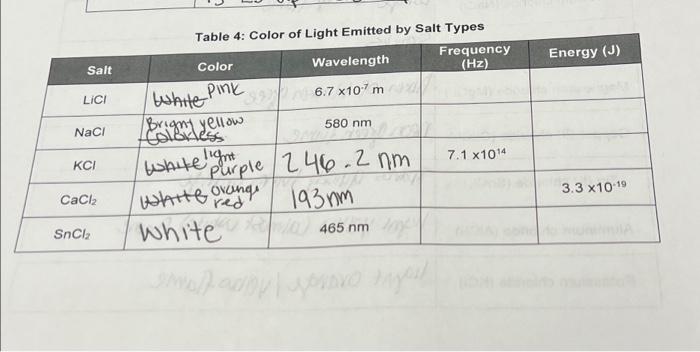 Table 4: Color of Light Emitted by Salt Types
Salt Color Wavelength Frequency (Hz) Energy (J)
LiCl White Pink 6.7 x10-7 m
NaCl Bright yellow Colorless 580 nm
KCl White light purple 246.2 nm 7.1 x1014
CaCl2 White orange red 193nm 3.3 x10-19
SnCl2 White 465 nm